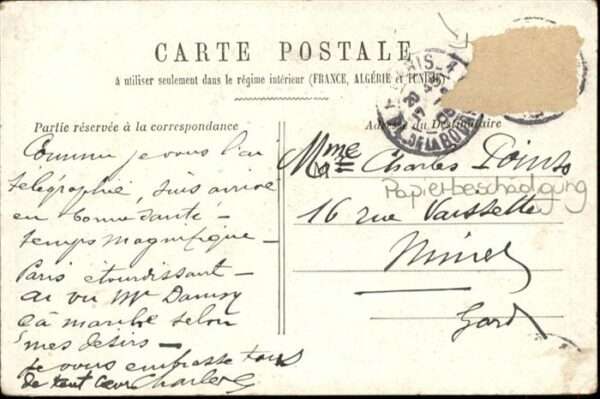 CARTE POSTALE
à utiliser seulement dans le régime intérieur (FRANCE, ALGÉRIE et TUNISIE)
Partie réservée à la correspondance
Adresse du Destinataire
Comme je vous l'ai
télégraphié, suis arrivé
en bonne santé -
temps magnifique -
Paris étourdissant -
ai vu Mr
ça marche selon
mes désirs -
je vous embrasse tous
de tout coeur Charles
Mme Charles
16 rue Vaissette
Nimes
Gard
Papierbeschädigung
PARIS
DE LA BOETIE